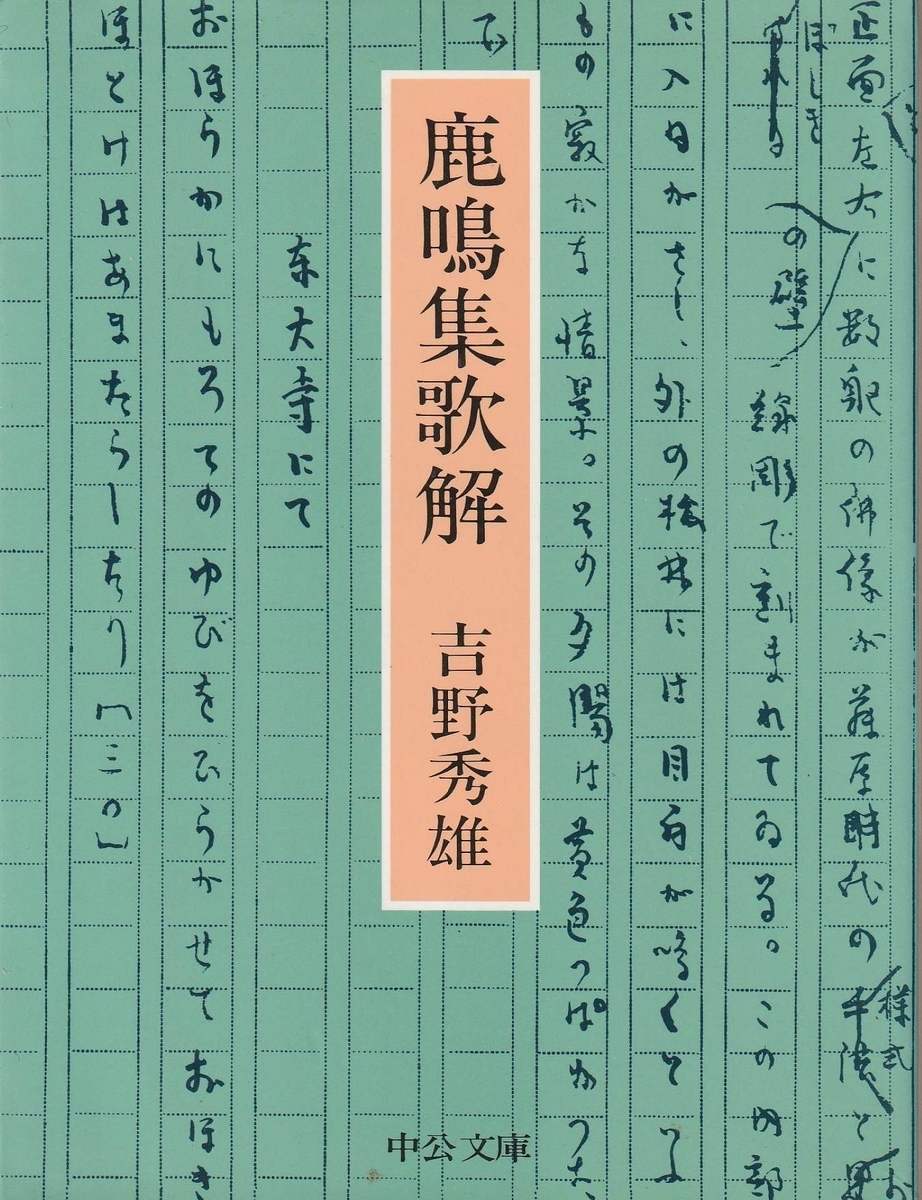 正面左右に数躯の佛像が藤原時代の
様式
ぼしき
の壁
線彫で刻まれてゐる。この内部
に入日がさし、外の 林には目白が鳴くといふ
もの寂かな情景。その夕陽は黄色つぽかつた、
鹿鳴集歌解 吉野秀雄
東大寺にて
おほらかにもろてのゆびをひらかせておほき
ほとけはあまたらしたり〔三〇〕
中公文庫